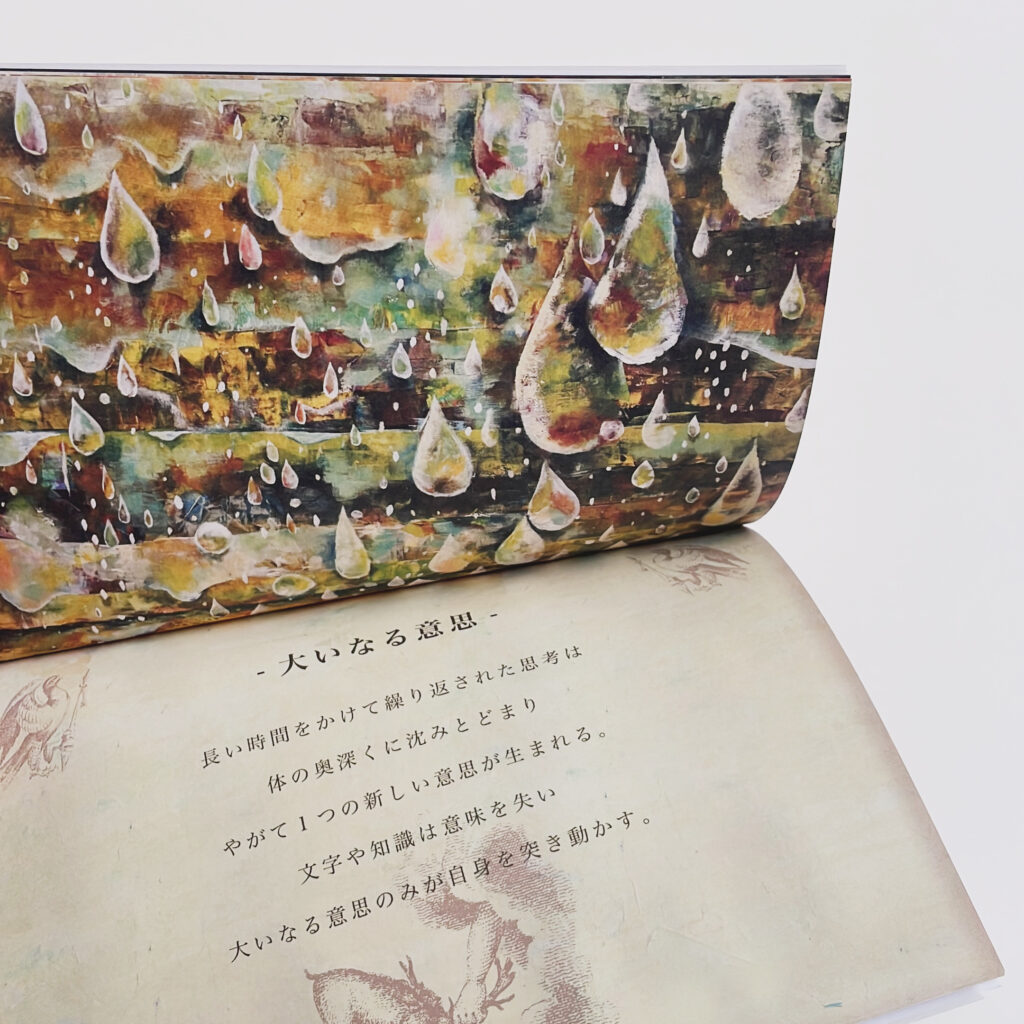 - 大いなる意思 -
長い時間をかけて繰り返された思考は
体の奥深くに沈みとどまり
やがて1つの新しい意思が生まれる。
文字や知識は意味を失い
大いなる意思のみが自身を突き動かす。